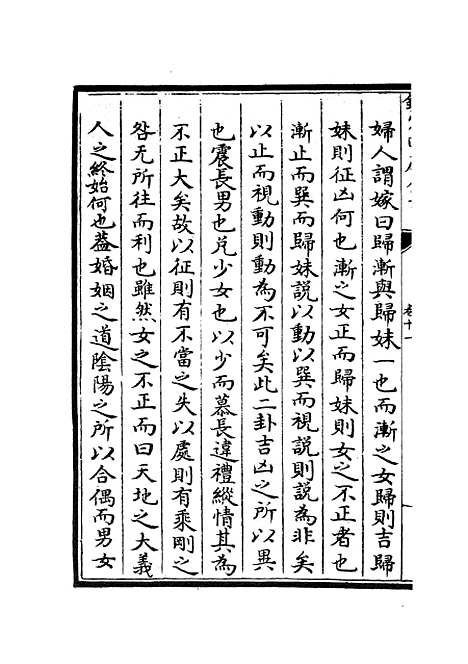 婦人謂嫁曰歸漸與歸妹一也而漸之女歸則吉歸
妹則征凶何也漸之女正而歸妹則女之不正者也
漸止而巽而歸妹說以動以巽而視說則說為非矣
以止而視動則動為不可矣此二卦吉凶之所以異
也震長男也兑少女也以少而慕長違禮縱情其為
不正大矣故以征則有不當之失以處則有乘剛之
咎无所往而利也雖然女之不正而曰天地之大義
人之終始何也葢婚姻之道隂陽之所以合偶而男女
卷十一